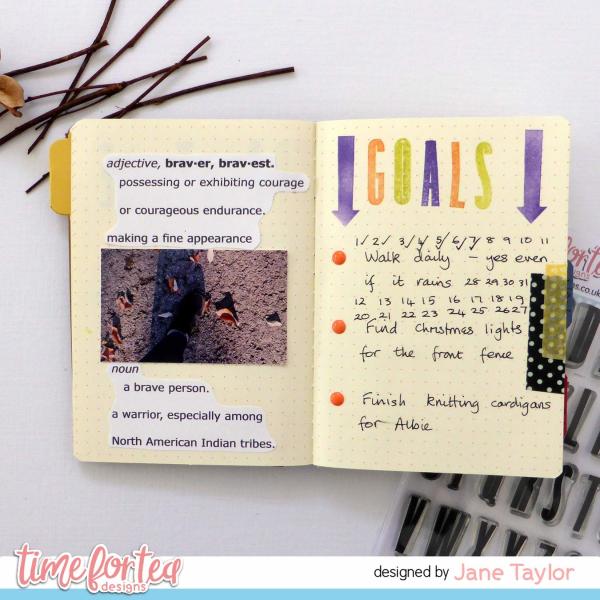 adjective, brav·er, brav·est.
possessing or exhibiting courage
or courageous endurance.
making a fine appearance
noun
a brave person.
a warrior, especially among
North American Indian tribes.
GOALS
1✓ 2✓ 3✓ 4✓ 5✓ 6✓ 7✓ 8 9 10 11
Walk daily – yes even
if it rains 28 29 30 31
12 13 14 15 16 17 18 19
20 21 22 23 24 25 26 27
Find Christmas lights
for the front fence
Finish knitting cardigans
for Albie
time for tea
designs
designed by Jane Taylor